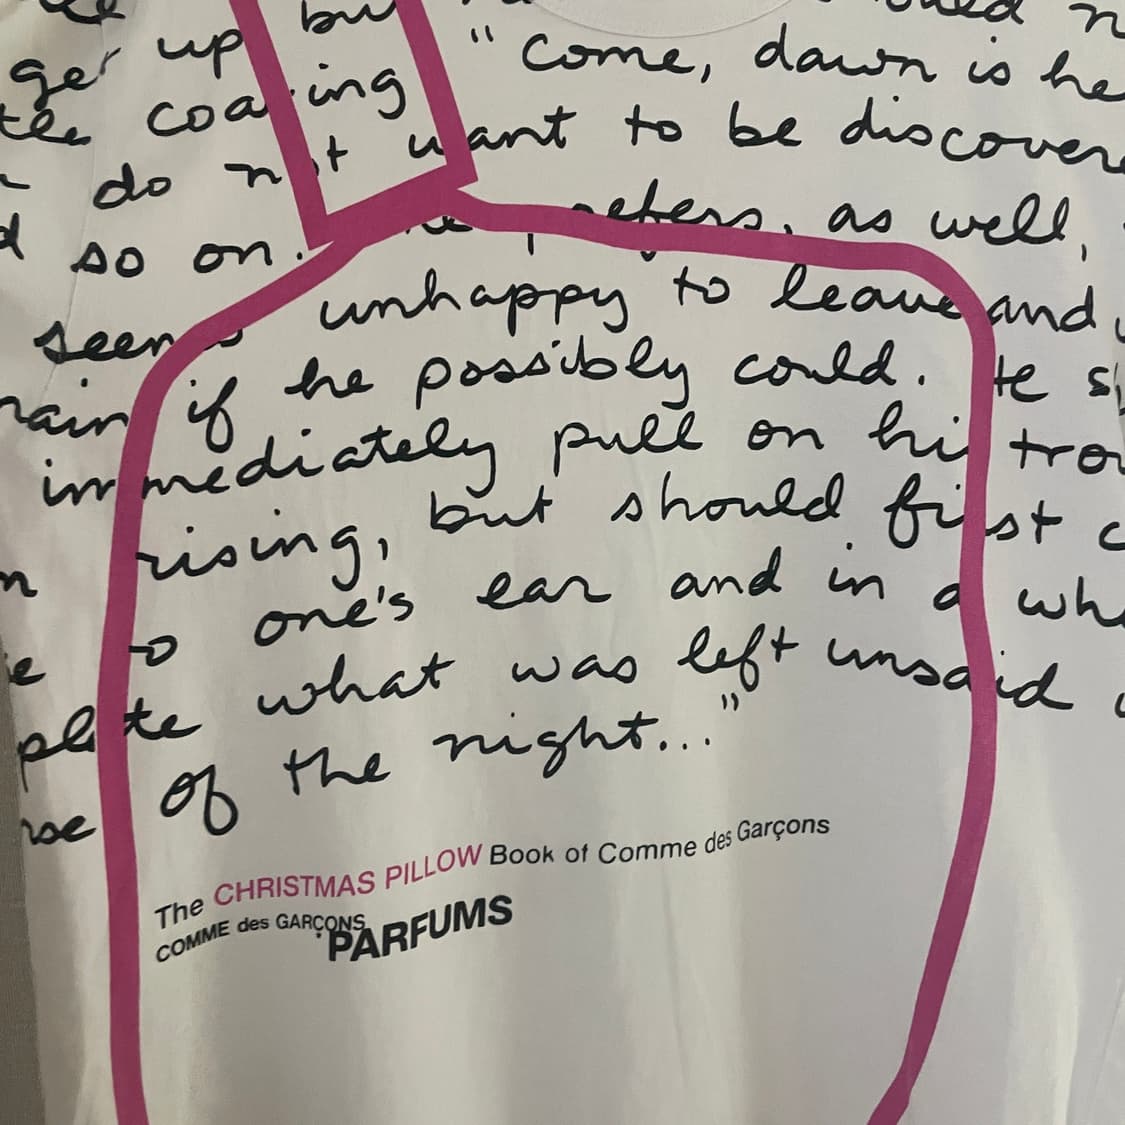 up bu
"Come, dawn is he
coaxing
do not want to be discovere
so on. He prefers, as well,
seems unhappy to leave and
if he possibly could. He s
immediately pull on his trou
rising, but should first c
to one's ear and in a whi
plete what was left unsaid
of the night..."
The CHRISTMAS PILLOW Book of Comme des Garçons
COMME des GARÇONS
PARFUMS